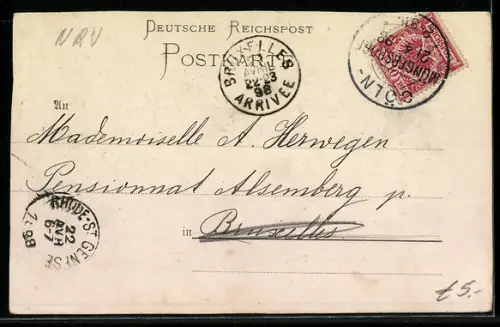 NRV
DEUTSCHE REICHSPOST
POSTKARTE
BRUXELLES
AVRIL
22-23
98
ARRIVÉE
CÖLN-
An
Mademoiselle A. Herwegen
Pensionnat Alsemberg p.
in Bruxelles
RHODE-ST GENESE
22
AVR
6-7
1898
£5.-